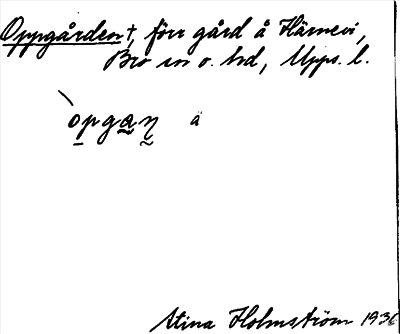 Oppgården †, förr gård å Härnevi,
Bro sn o. hd, Upps. l.
`opgaη ä
Stina Holmström 1936